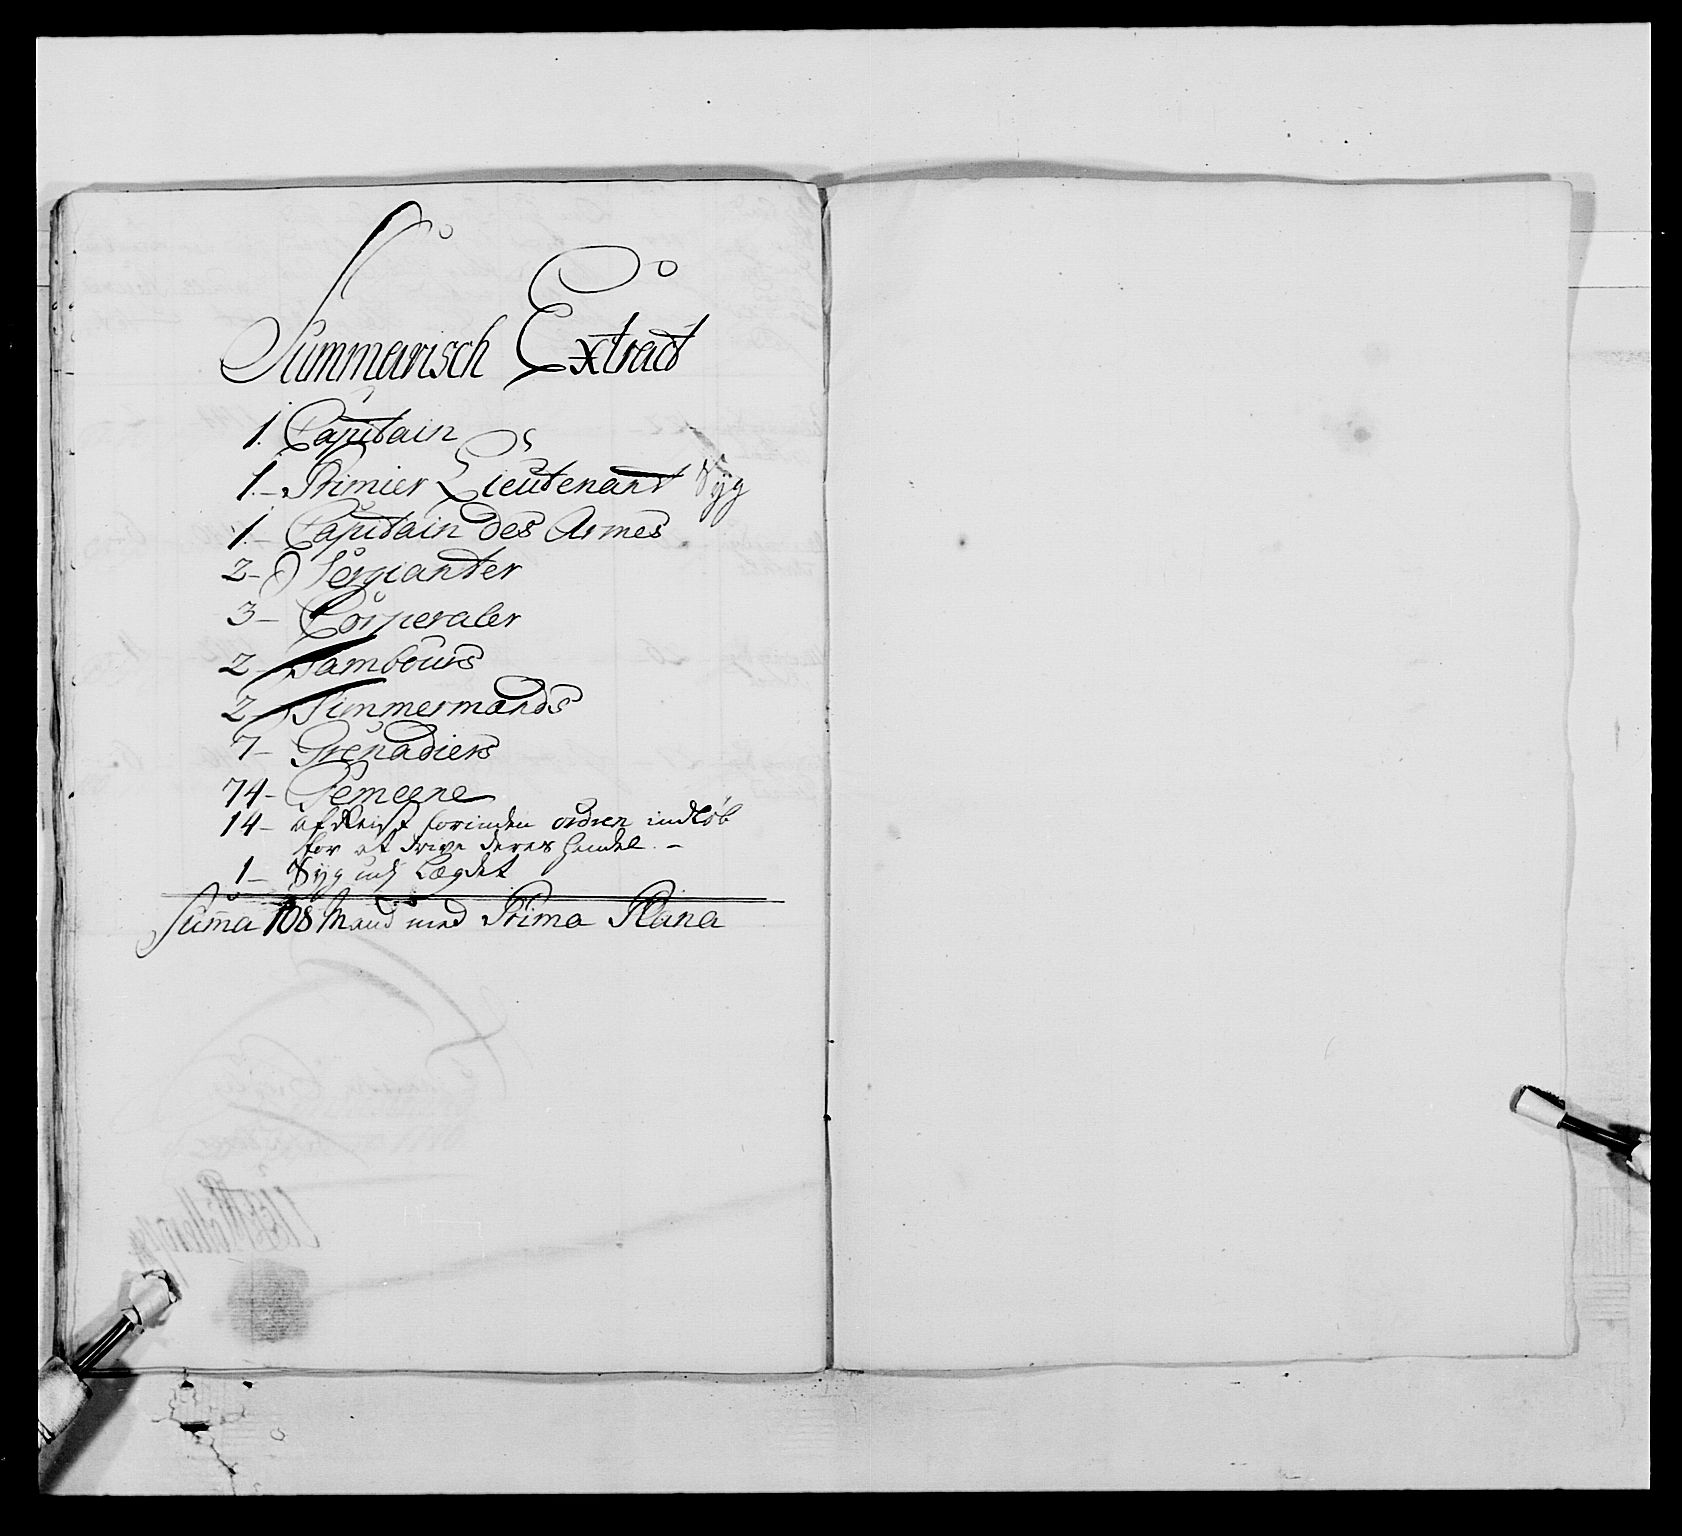 Summarisch Extract
1. Capitain
1.- Primier Lieutenant Syg
1.- Capitain des Armes
2- Sergianter
3- Corperaler
2- Tambours
2- Timmermænds
7- Grenadiers
74- Gemeene
14- afReist forinden ordren indløb
for at drive deres Handel. -
1- Syg udj Lægdet
Suma 108 Mand med Prima Plana